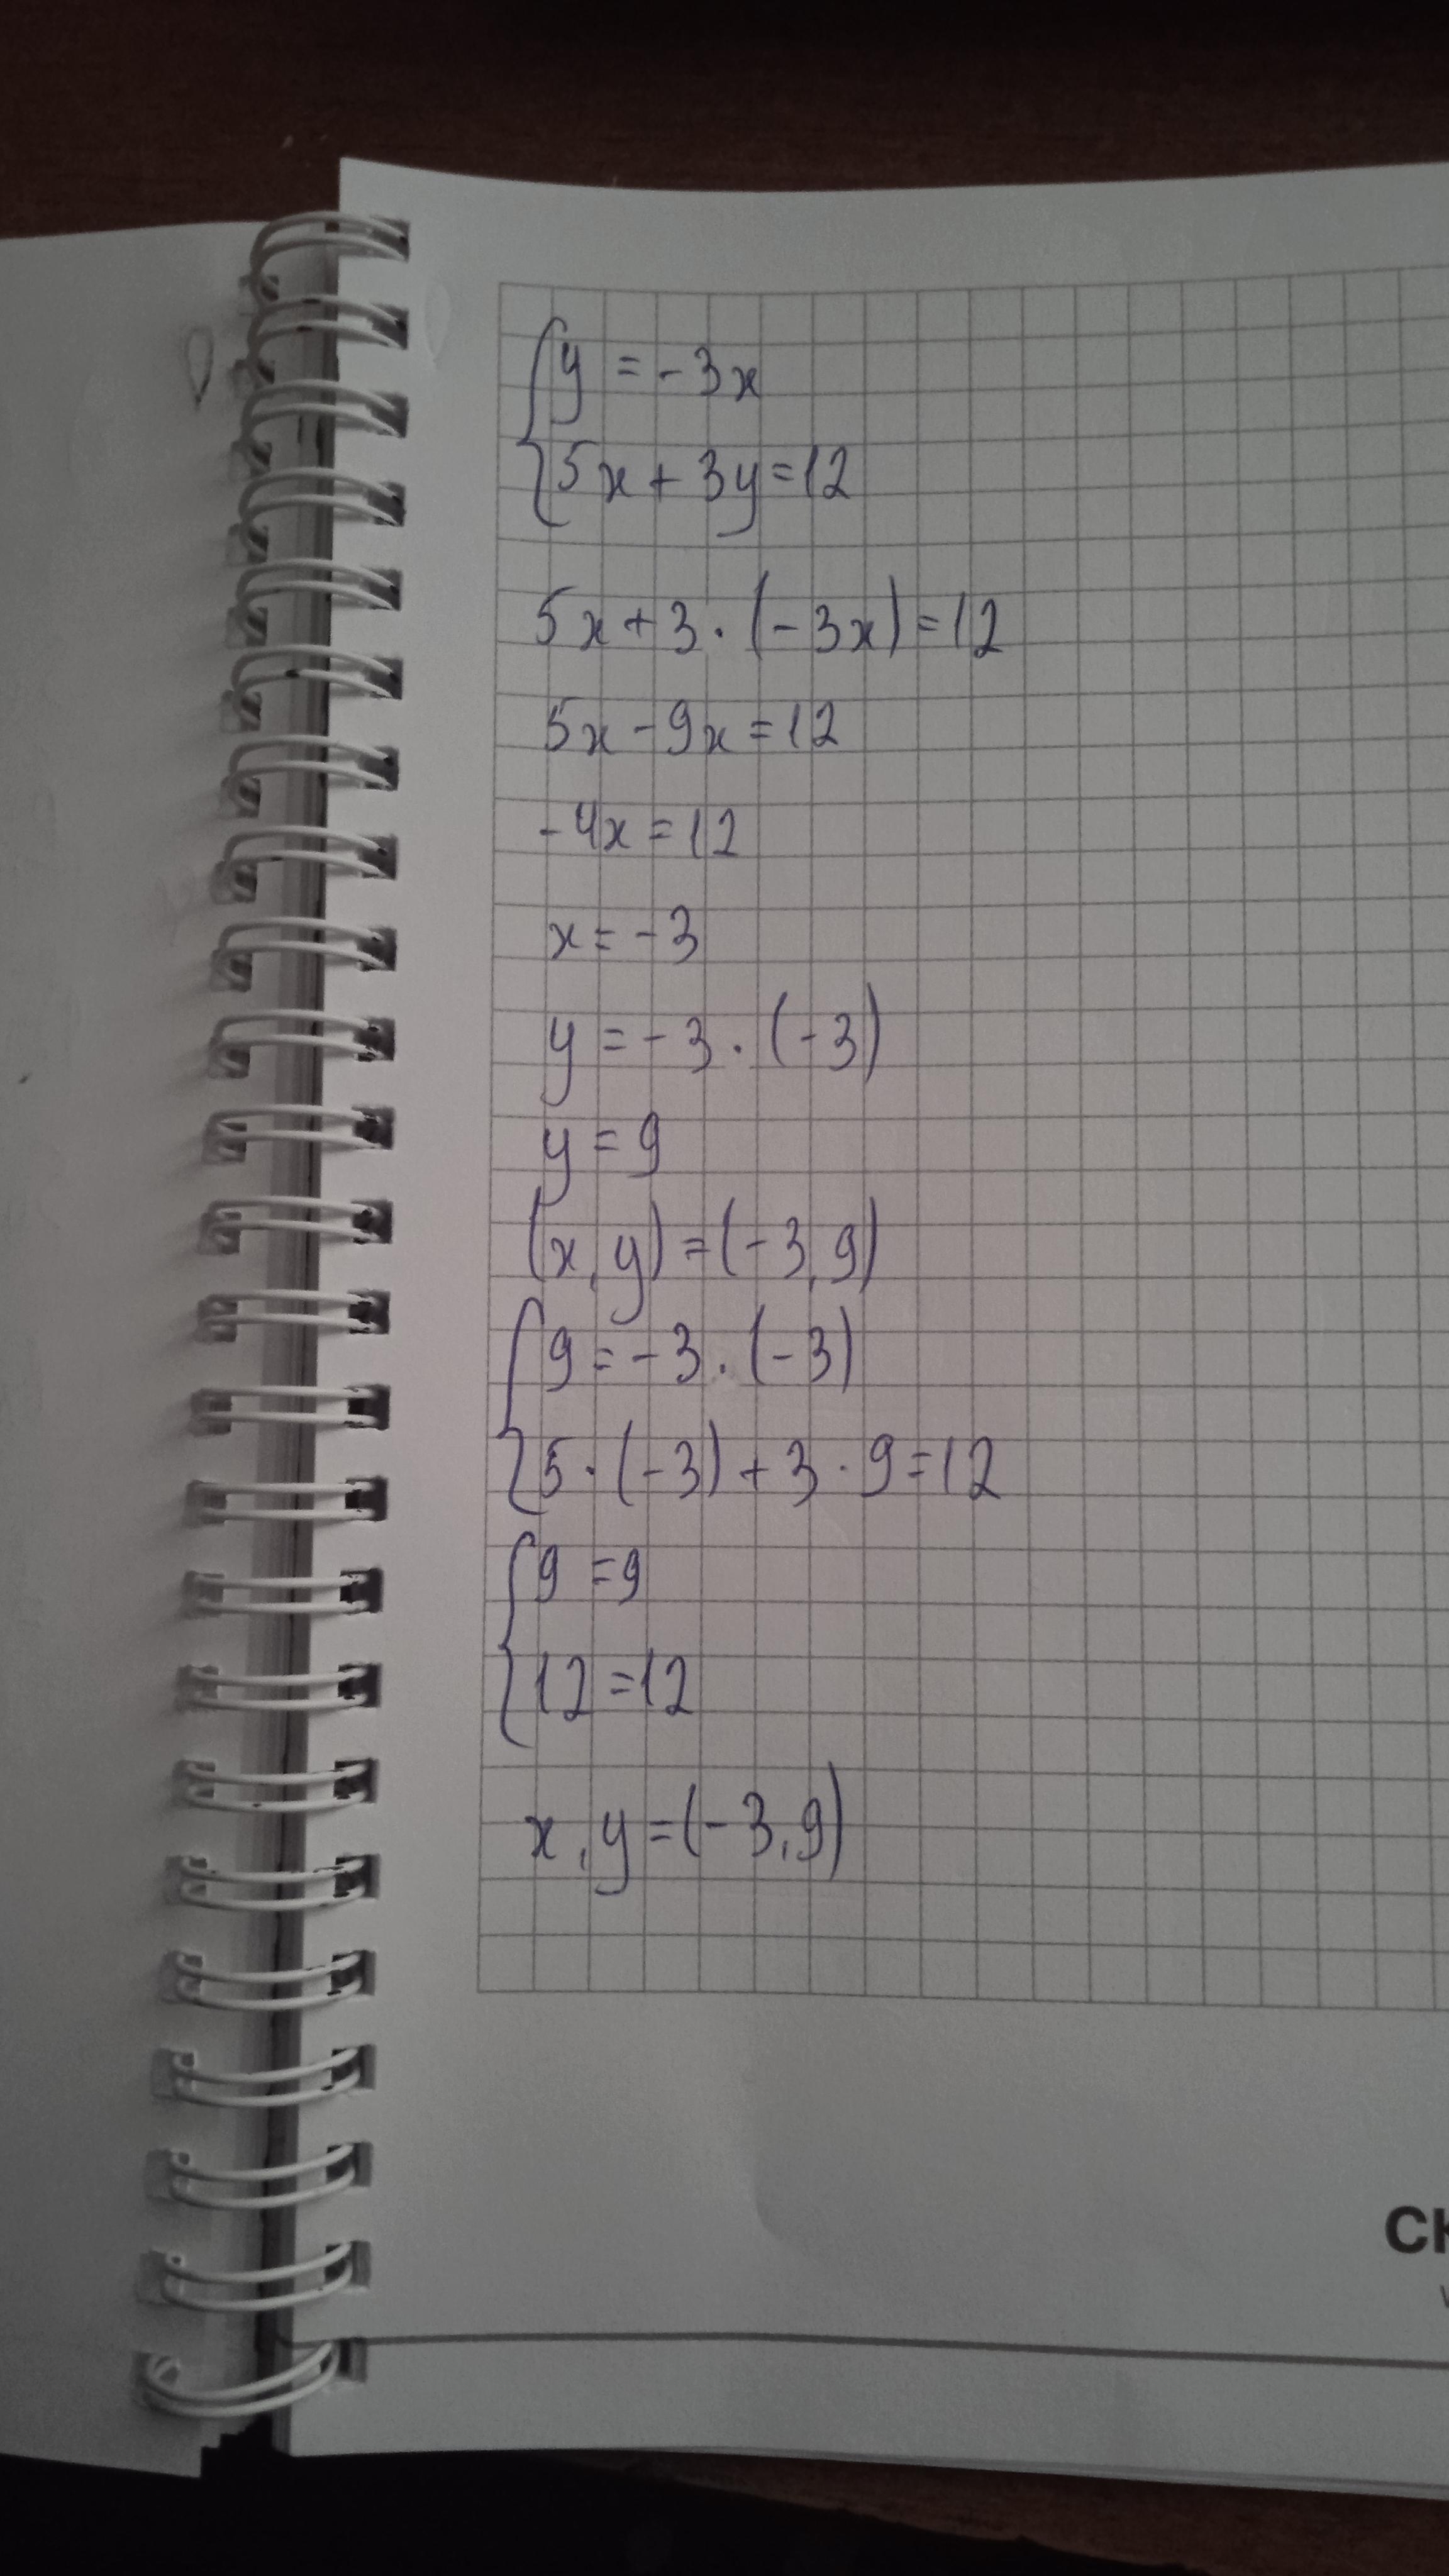 {y = -3x
{5x + 3y = 12
5x + 3 · (-3x) = 12
5x - 9x = 12
-4x = 12
x = -3
y = -3 · (-3)
y = 9
(x, y) = (-3, 9)
{9 = -3 · (-3)
{5 · (-3) + 3 · 9 = 12
{9 = 9
{12 = 12
x, y = (-3, 9)